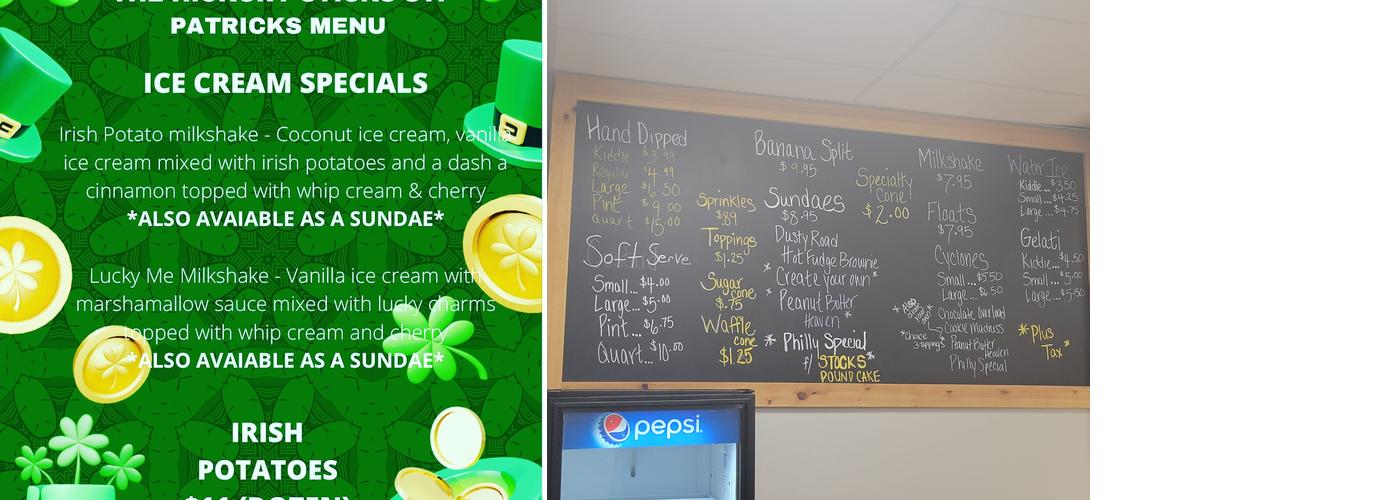 PATRICKS MENU
ICE CREAM SPECIALS
Irish Potato milkshake - Coconut ice cream, vanilla
ice cream mixed with irish potatoes and a dash a
cinnamon topped with whip cream & cherry
*ALSO AVAIABLE AS A SUNDAE*
Lucky Me Milkshake - Vanilla ice cream with
marshamallow sauce mixed with lucky charms
topped with whip cream and cherry
*ALSO AVAIABLE AS A SUNDAE*
IRISH
POTATOES
Hand Dipped
Kiddie $3.99
Regular $4.99
Large $6.50
Pint $9.00
Quart $15.00
Soft Serve
Small... $4.00
Large... $5.00
Pint... $6.75
Quart... $10.00
Sprinkles
$.89
Toppings
$1.25
Sugar
cone
$.75
Waffle
cone
$1.25
Banana Split
$9.95
Sundaes
$8.95
Dusty Road
Hot Fudge Brownie
* Create your own *
Peanut Butter
Heaven *
* Philly Special
f/ STOCKS *
POUND CAKE
Specialty
Cone
$2.00
Milkshake
$7.95
Floats
$7.95
Cyclones
Small... $5.50
Large... $6.50
Chocolate Overload
Cookie Madness
Peanut Butter
Heaven
Philly Special
*Choice
3 toppings*
Water Ice
Kiddie... $3.50
Small... $4.25
Large... $4.75
Gelati
Kiddie... $4.50
Small... $5.00
Large... $5.50
* Plus
Tax *
pepsi